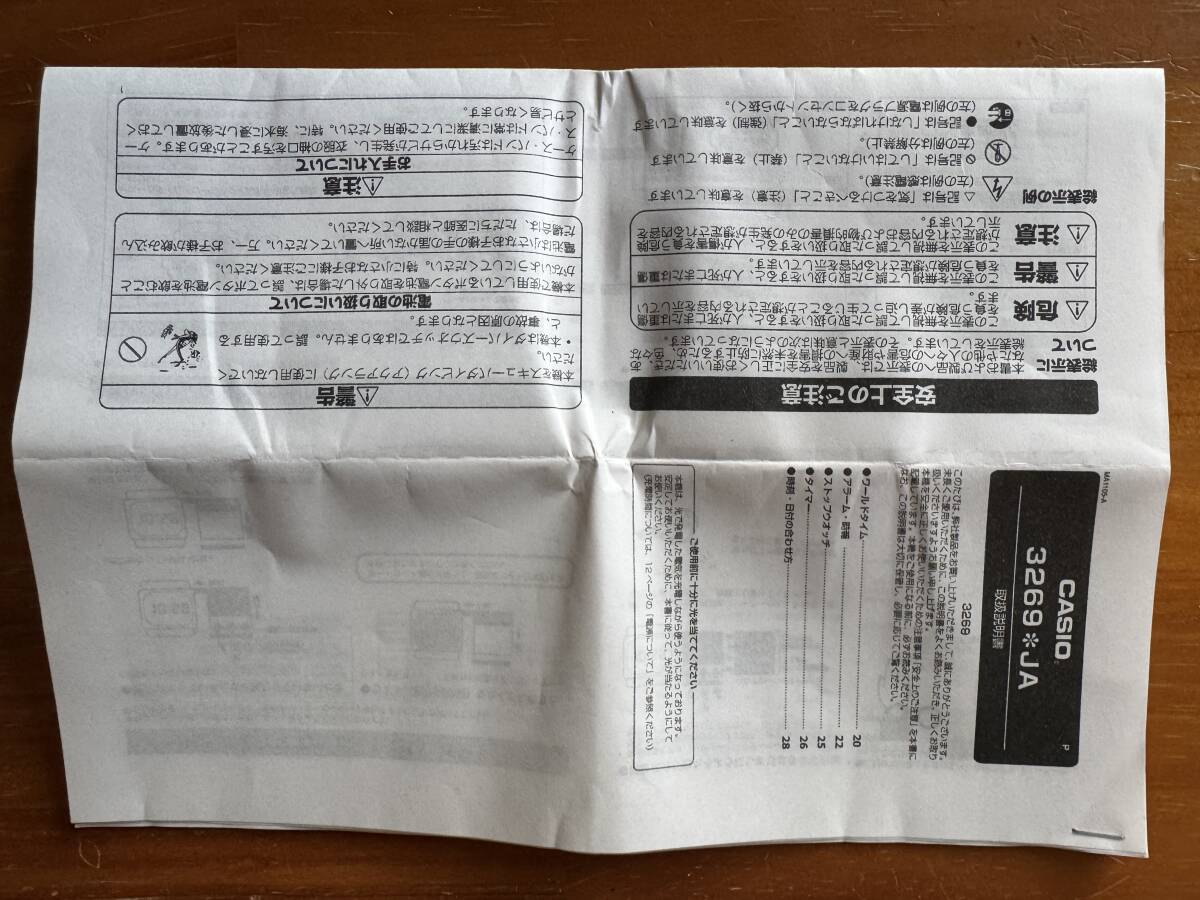 MA1105-A
P
CASIO
3269＊JA
取扱説明書
3269
このたびは、弊社製品をお買い上げいただきまして、誠にありがとうございます。
末長くご使用いただくために、この説明書をよくお読みいただき、正しくお取り
扱いくださいますようお願い申し上げます。
本機を安全に正しくお使いいただくための注意事項「安全上のご注意」を本書に
記載しています。本機をご使用になる前に、必ずお読みください。
なお、この説明書は大切に保管し、必要に応じてご覧ください。
●ワールドタイム 20
●アラーム・時報 22
●ストップウオッチ 25
●タイマー 26
●時刻・日付の合わせ方 28
ご使用前に十分に光を当ててください
本機は、光で発電した電気を充電しながら使うようになっております。
安定してお使いいただくために、本書に従って、光が当たるようにして
お使いください。
（充電時間については、12ページの「電源について」をご参照ください）
安全上のご注意
絵表示に
ついて
本書および製品への表示では、製品を安全に正しくお使いいただき、あ
なたや他の人々への危害や財産への損害を未然に防止するため、色々な
絵表示をしています。その表示と意味は次のようになっています。
危険
この表示を無視して誤った取り扱いをすると、人が死亡または重傷
を負う危険が差し迫って生じることが想定される内容を示してい
ます。
警告
この表示を無視して誤った取り扱いをすると、人が死亡または重傷
を負う危険が想定される内容を示しています。
注意
この表示を無視して誤った取り扱いをすると、人が傷害を負う危険
が想定される内容および物的損害のみの発生が想定される内容を
示しています。
絵表示の例
△ 記号は「気をつけるべきこと」（注意）を意味しています
（左の例は感電注意）。
記号は「してはいけないこと」（禁止）を意味しています
（左の例は分解禁止）。
● 記号は「しなければならないこと」（強制）を意味しています
（左の例は電源プラグをコンセントから抜く）。
警告
本機をスキューバダイビング（アクアラング）に使用しないでく
ださい。
・本機はダイバーズウオッチではありません。誤って使用する
と、事故の原因となります。
電池の取り扱いについて
本機で使用しているボタン電池を取り外した場合は、誤ってボタン電池を飲むこと
がないようにしてください。特に小さなお子様にご注意ください。
電池は小さなお子様の手の届かない所へ置いてください。万一、お子様が飲み込ん
だ場合は、ただちに医師と相談してください。
注意
お手入れについて
ケース・バンドは汚れからサビが発生し、衣服の袖口を汚すことがあります。ケー
ス・バンドは常に清潔にしてご使用ください。特に、海水に浸した後放置しておく
とサビ易くなります。
1